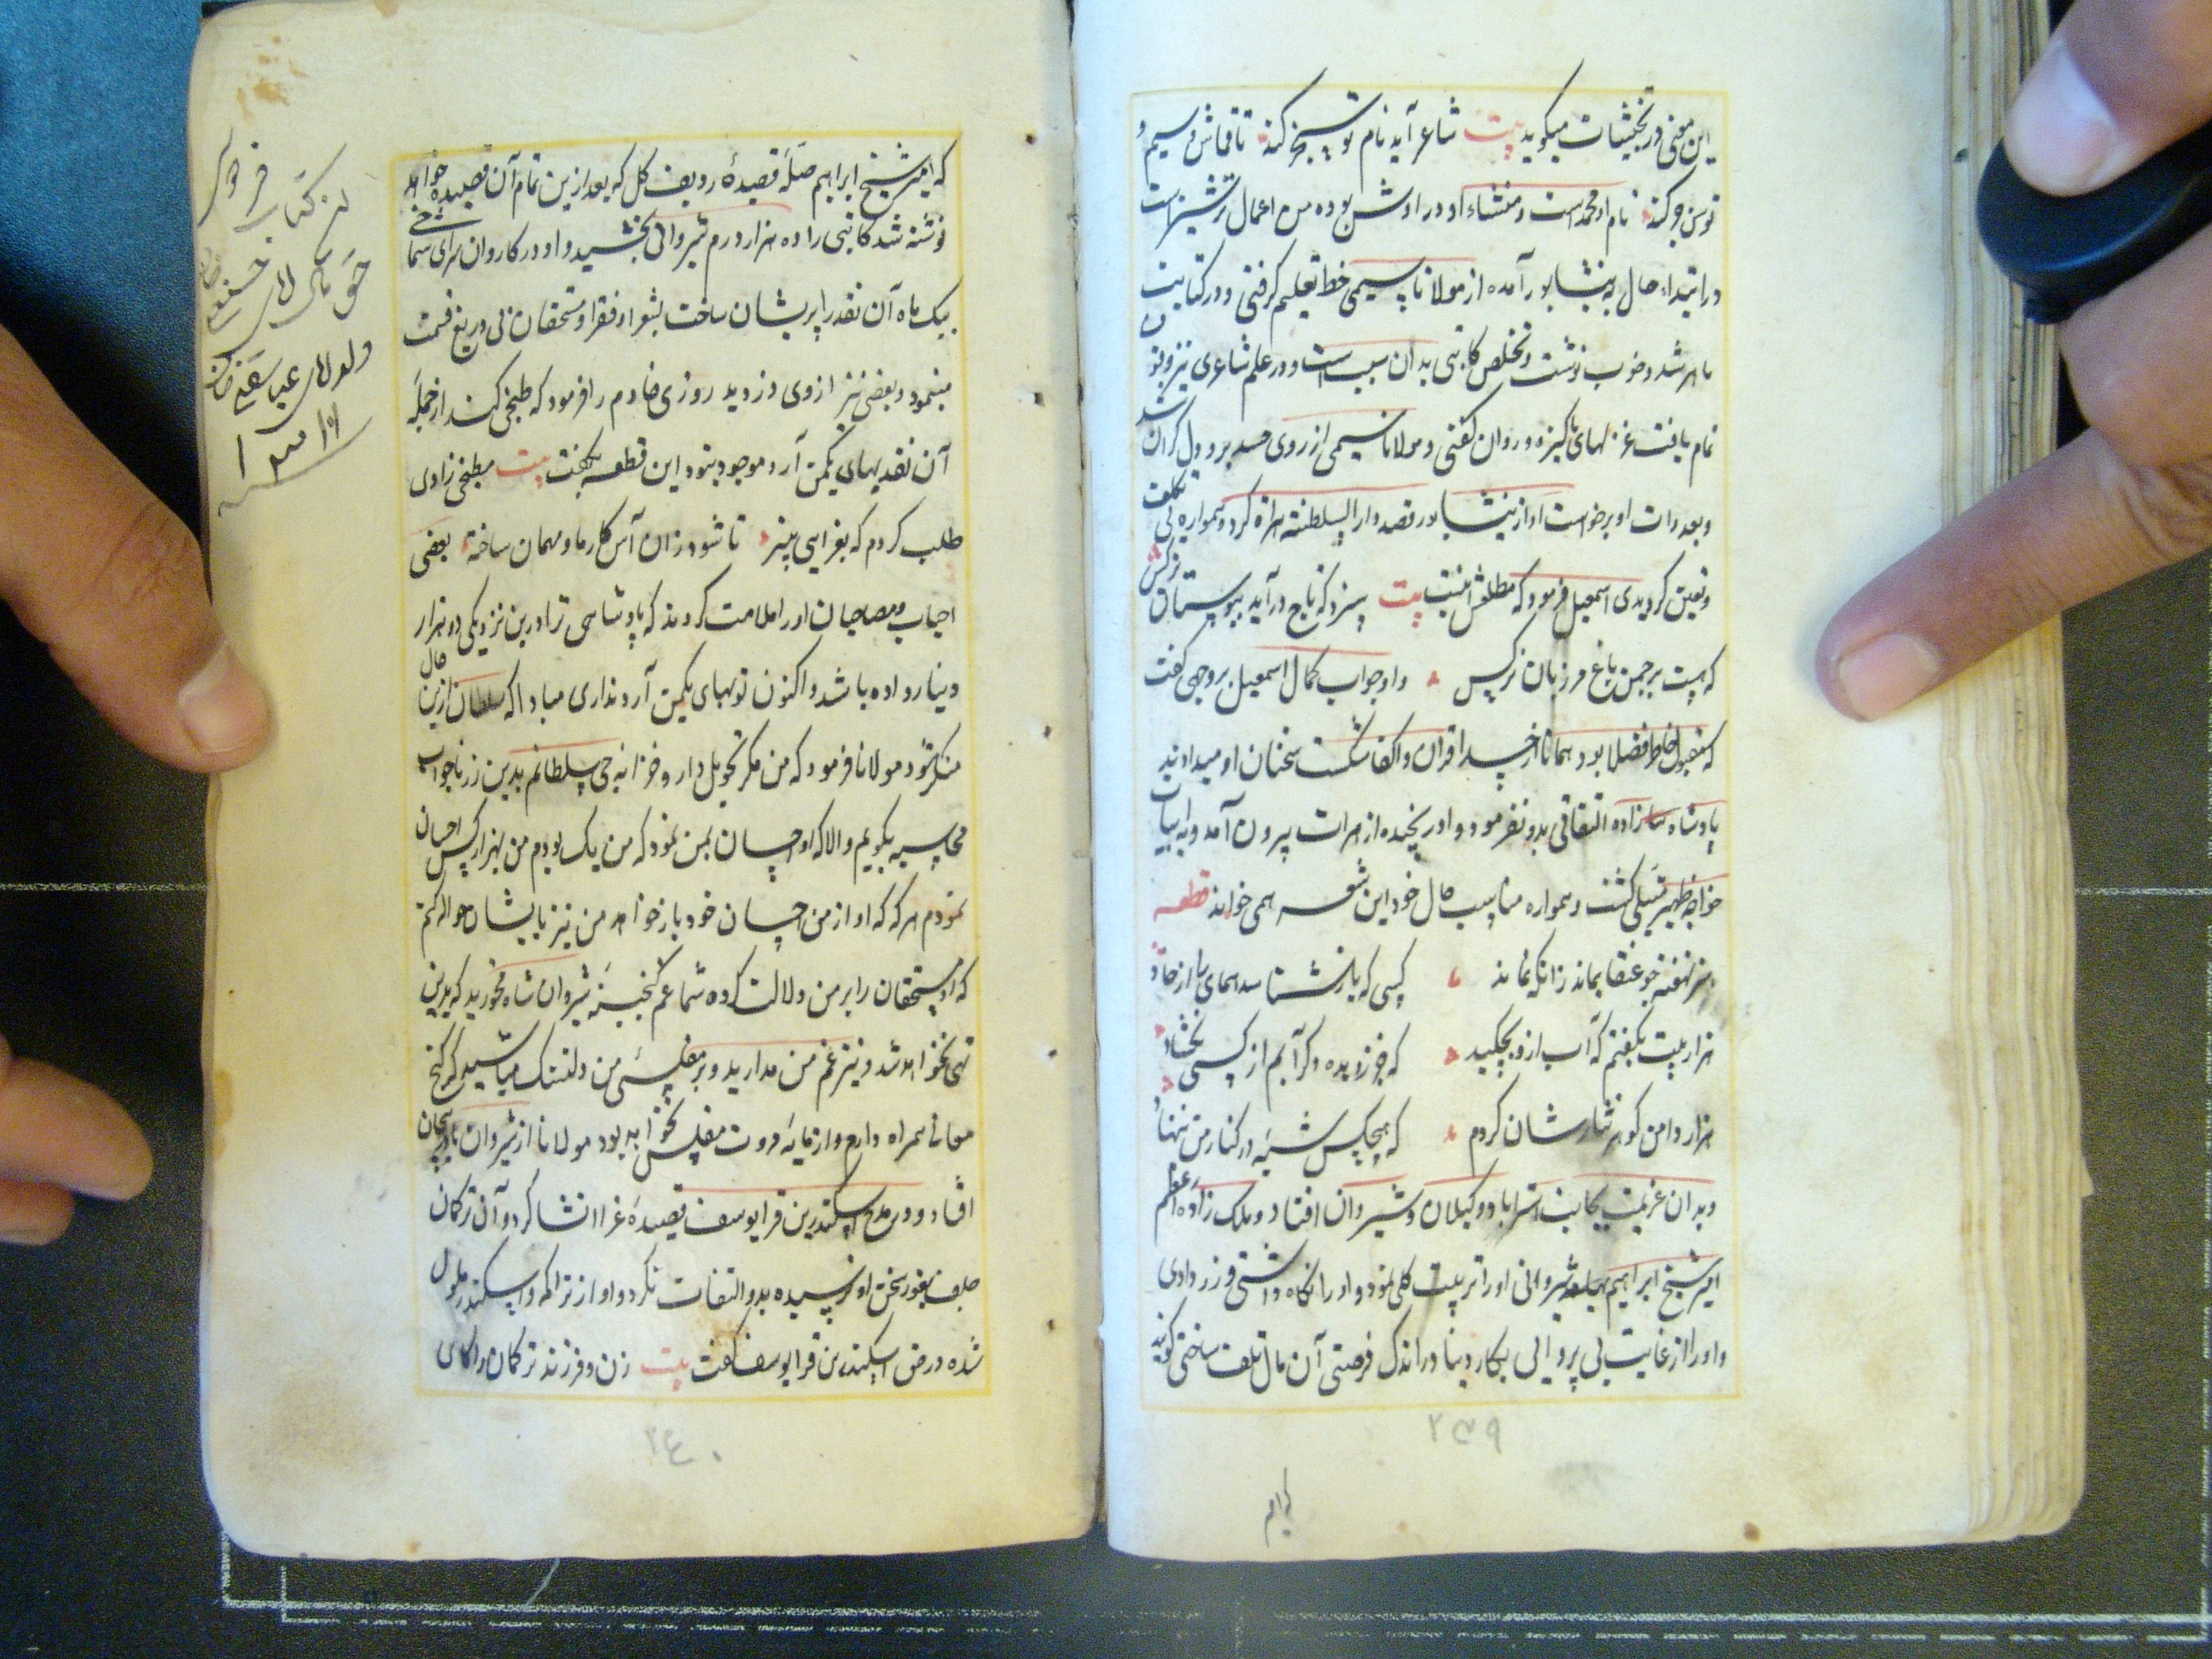 این معنی در تجنیسات میکوید بیت شاعر آید نام تو تسبیح کند تا قماش و سیم و
توسن جو کند نام او محمد است و منشاء او در اوش بوده من اعمال ترشیز است
در ابتداء حال به نیشابور آمده از مولانا سیمی خط تعلیم کرفتی و در کتابت
ماهر شد و خوب نوشت و تخلص کاتبی بدان سبب است و در علم شاعری نیز وقوف
تمام یافت غزلهای پاکیزه و روان کفتی و مولانا سیمی از روی حسد برو دل کران شد
و بعداوت او برخواست او از نیشابور قصد دار السلطنه هراة کرد و همواره بی تکلف
و تعین کردیدی اسمعیل فرمود که مطلعش اینست بیت سزد که تاج ور آید ببوستان نرکس
که هست بر چمن باغ مرزبان نرکس و او جواب کمال اسمعیل بروجهی کفت
که مقبول خاطر فضلا بود همانا از حسد اقران و اکفا شکست سخنان او میدادند
پادشاه شاهزاده التفاتی بدو نفرمود و او رنجیده از هرات بیرون آمد و به ابیات
خواجه ظهیر تسلی کشت و همواره مناسب حال خود این شعر همی خواند قطعه
هنر نهفته چو عنقا بماند زانکه نماند کسی که باز شناسد همای را از خاد
هزار بیت بکفتم که آب ازو بچکید که جز ز دیده دکر آبم از کسی نکشاد
هزار دامن کوهر نثارشان کردم که هیچکس شبه در کنار من ننهاد
و بدان عزیمت بجانب استراباد و کیلان و شیروان افتاد و ملک زاده اعظم
امیر شیخ ابراهیم شیروانی او را تربیت کلی نمود و او را نکاه داشتی و زر دادی
و او را از غایت بی پروائی بکار دنیا در اندک فرصتی آن مال تلف ساختی کویند
۲۳۹
که امیر شیخ ابراهیم صله قصیدهٔ ردیف کل که بعد ازین تمام آن قصیده خواهد
نوشته شد کاتبی را ده هزار درم شیروانی بخشید و او در کاروان سرای شماخی
بیک ماه آن نقد را پریشان ساخت بشعرا و فقرا و مستحقان بی دریغ قسمت
مینمود و بعضی نیز از وی دزدید روزی خادم را فرمود که طبخی کند از جمله
آن نقد بهای یکمن آرد موجود نبود این قطعه بکفت بیت مطبخی را دی
طلب کردم که بغرایی پزد تا شود زان آش کار ما و مهمان ساخته بعضی
احباب و مصاحبان او را ملامت کردند که پادشاهی ترا درین نزدیکی ده هزار
دینار داده باشد و اکنون تو بهای یکمن آرد نداری مبادا که سلطان ازین حال
منکر شود مولانا فرمود که من مکر تحویلدار و خزانه چی سلطانم بدین زر تا جواب
محاسبه بکویم و الا که او احسان بمن نمود که من یک بودم من بهزار کس احسان
نمودم هر که که او از من احسان خود باز خواهد من نیز بایشان حواله کنم
که او مستحقان را بر من دلالت کرده شما غم کنجینهٔ شیروان شاه مخورید که بدین
تهی نخواهد شد و نیز غم من مدارید و بر مفلسی من دلتنک مباشید که کنج
معانی همراه دارم و از مایهٔ مروت مفلس نخواهد بود مولانا از شیروان باذربیجان
افتاد و در مدح اسکندر بن قرا یوسف قصیدهٔ غرا انشا کرد و آن ترکمان
جلف بغور سخن او نرسیده بدو التفات نکرد و او از تراکمه و اسکندر ملول
شده در حق اسکندر بن قرا یوسف کفت بیت زن و فرزند ترکمان را کای
۲۴۰